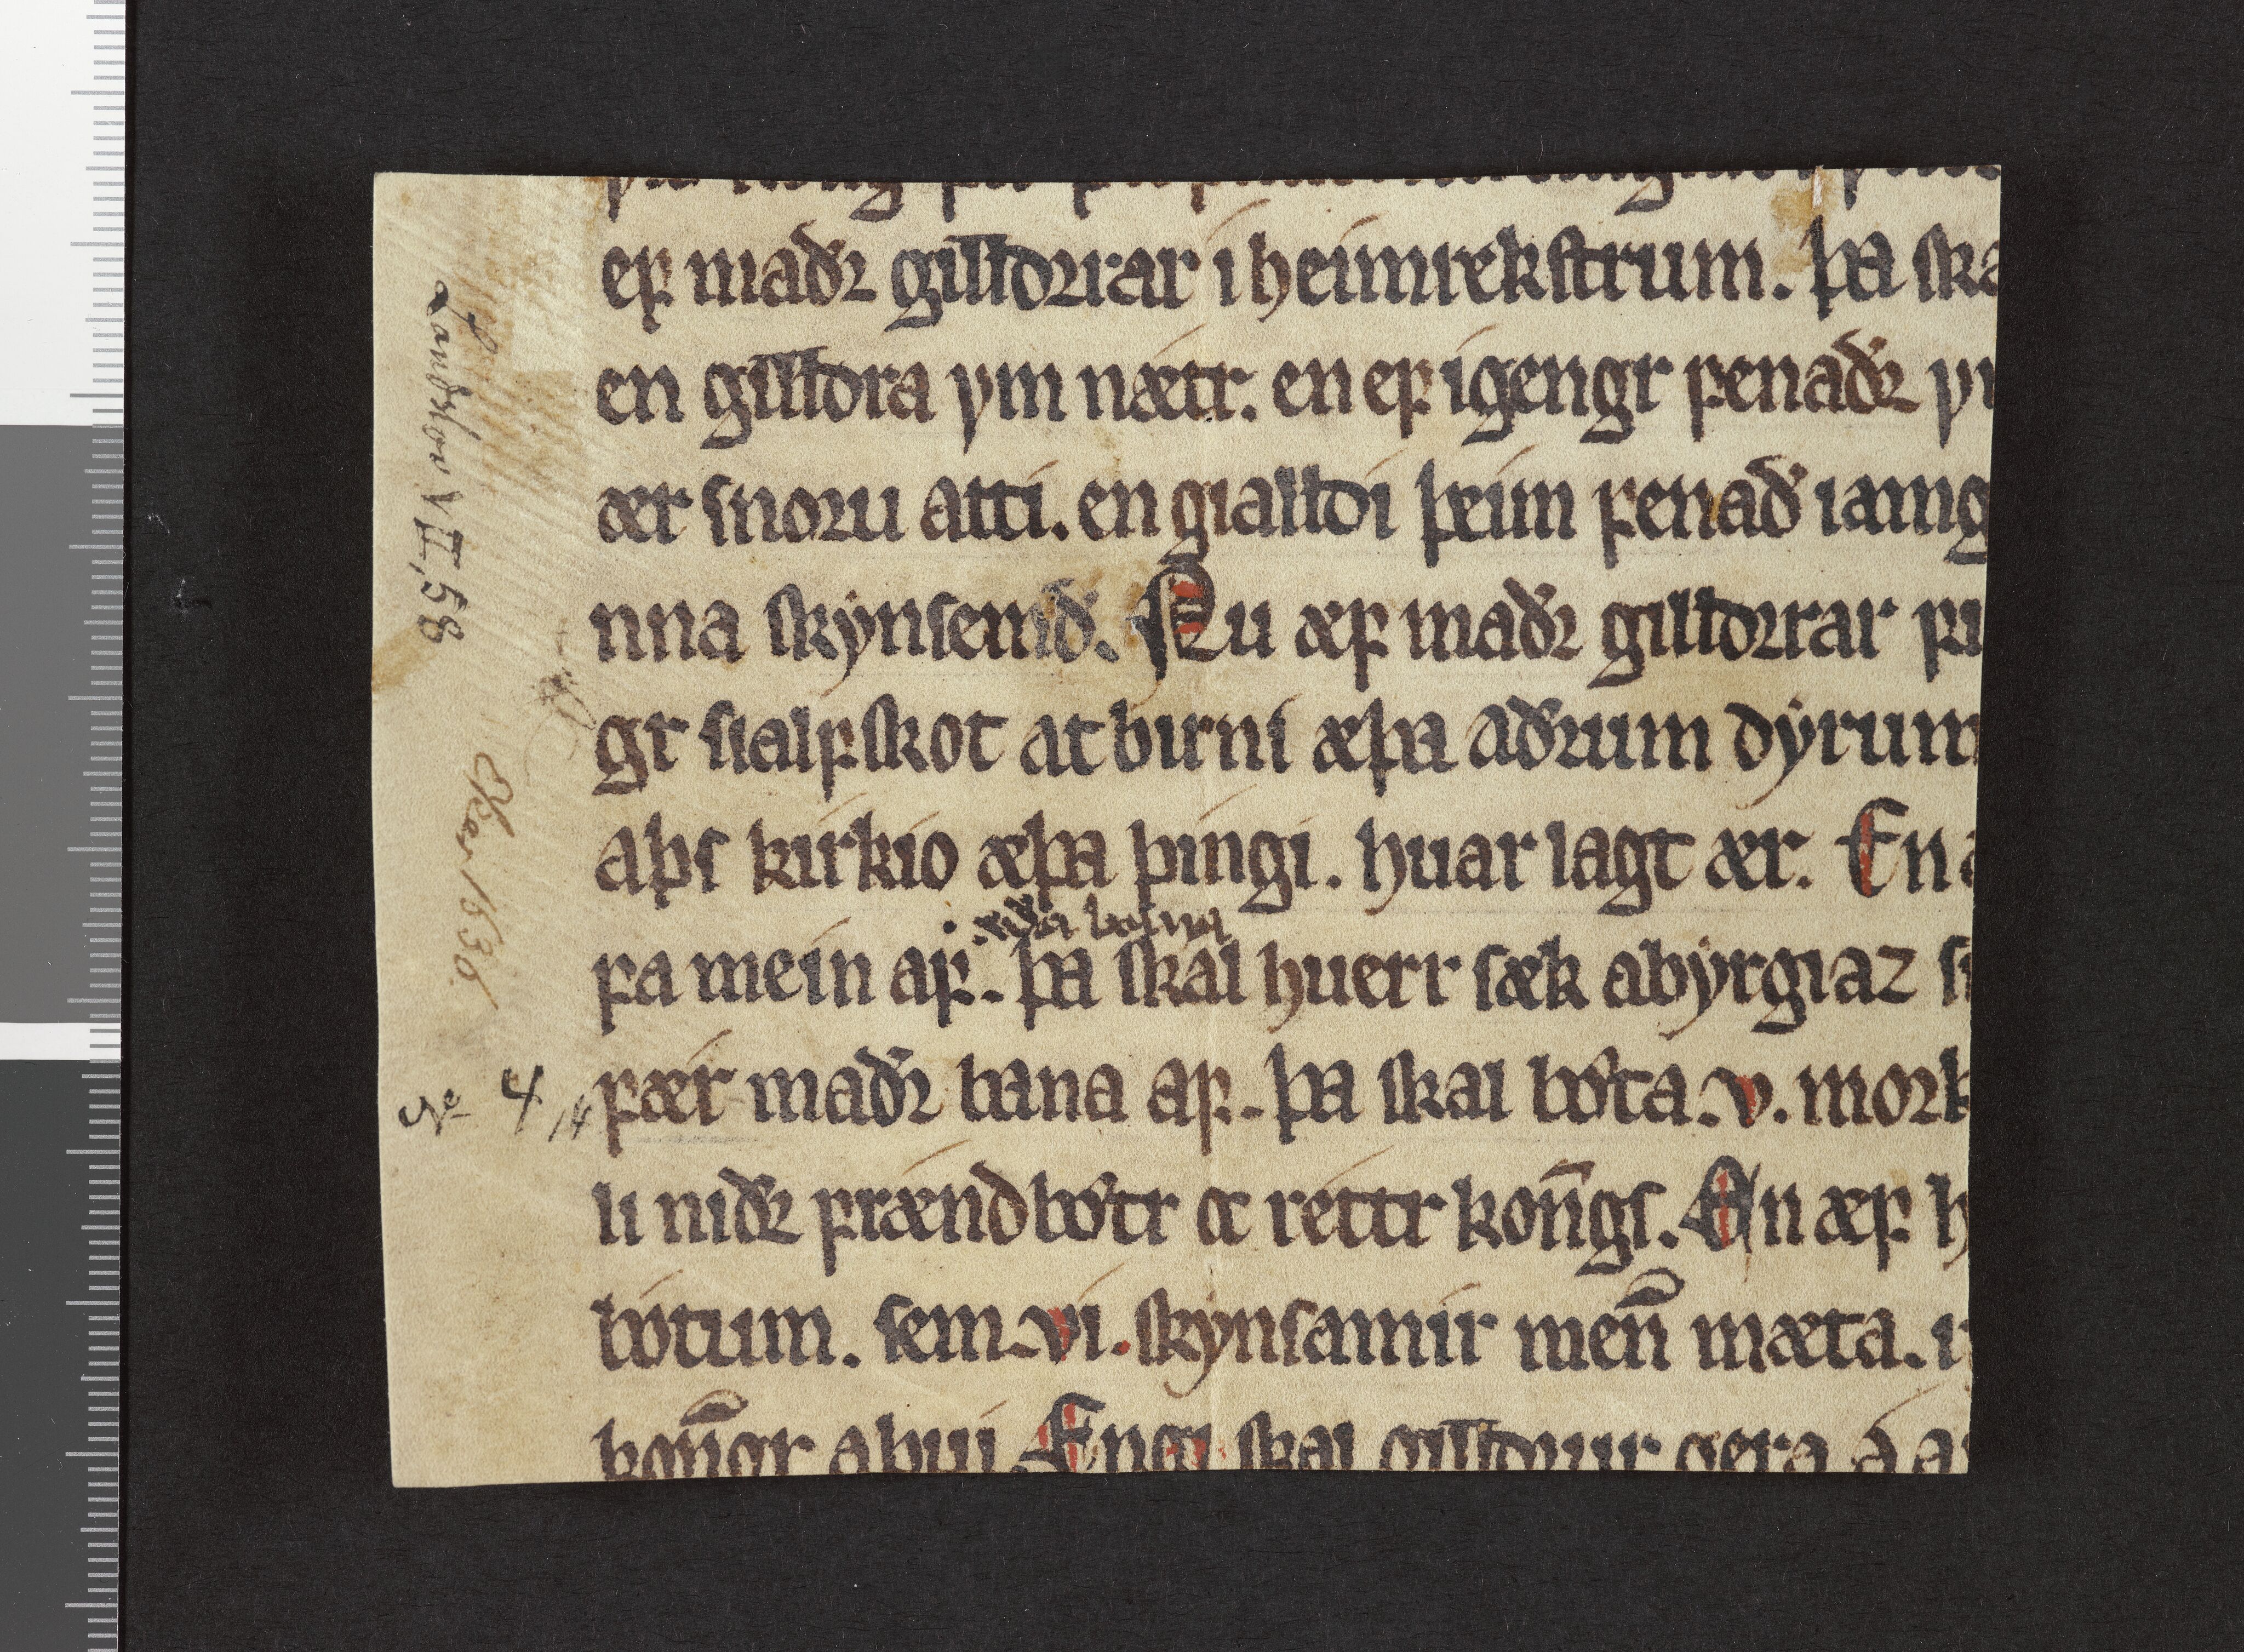 eꝼ maðꝛ gilldꝛrar i heimrekſtrum. þa ſka
en gilldra ym nætr. en eꝼ igengr ꝼenaðꝛ ym
ær ſnoꝛu atti. en gialldi þeim ꝼenað iamg
nna ſkynſemð. Nu æꝼ maðꝛ gilldꝛrar ꝼi
gr sialꝼſkot at birni æþa aðrum dyrum
aþſ kirkio æþa þingi. huar lagt ær. En
æða bana
ꝼa mein aꝼ. þa ſkal huerr ſæk abyrgiaz ſi
ꝼær maðꝛ bana aꝼ. þa ſkal bota. v. moꝛk
li niðꝛ ꝼrændbotr oc rettr kon̄gſ. En æꝼ h
botum. ſem. vi. ſkynſamir men̄ mæta.
kon̄gr abui. Engi ſkal gilldrur gera a a
Landslov VII, 58
1636
No 4 14